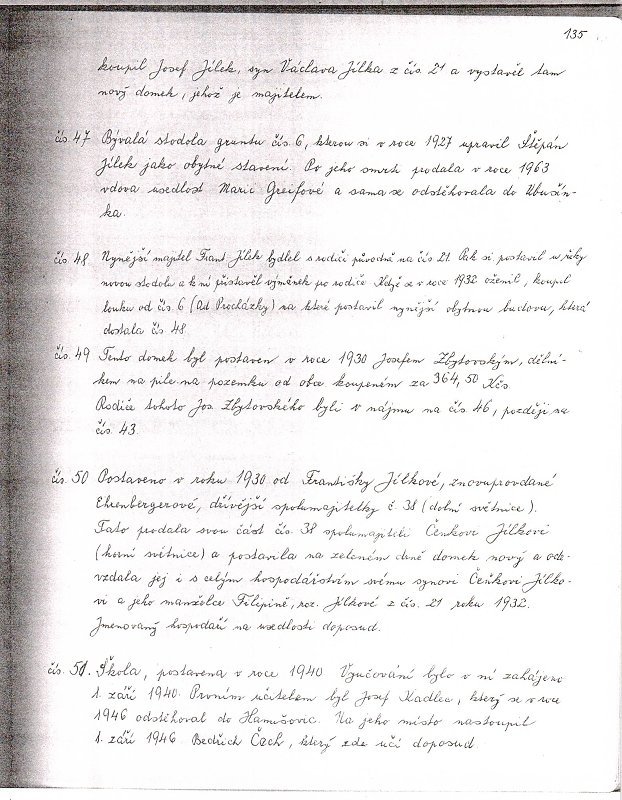 135
koupil Josef Jílek, syn Václava Jílka z čís. 21 a vystavěl tam
nový domek, jehož je majitelem.
čís. 47 Bývalá stodola gruntu čís. 6, kterou si v roce 1927 upravil Štěpán
Jílek jako obytné stavení. Po jeho smrti prodala v roce 1963
vdova usedlost Marii Greifové a sama se odstěhovala do Ubušín-
ka.
čís. 48 Nynější majitel Frant. Jílek bydlel s rodiči původně na čís 21. Pak si postavil
novou stodolu a k ní přistavěl výměnek pro rodiče. Když se v roce 1932 oženil, koupil
louku od čís. 6 (Od Procházky) na které postavil nynější obytnou budovu, která
dostala čís. 48.
čís. 49 Tento domek byl postaven v roce 1930 Josefem Zbytovským, dělní-
kem na pile na pozemku od obce koupeném za 364,50 Kčs
Rodiče tohoto Jos. Zbytovského byli v nájmu na čís. 46, později na
čís. 43.
čís. 50 Postaveno v roku 1930 od Františky Jílkové, znovuprovdané
Ehrenbergerové, dřívější spolumajitelky č. 38 (dolní světnice).
Tato prodala svou část čís. 38 spolumajiteli Čeňkovi Jílkovi
(horní světnice) a postavila na zeleném domek nový a ode-
vzdala jej i s celým hospodářstvím svému synovi Čeňkovi Jílko-
vi a jeho manželce Filipině, roz. Jílkové z čís. 21 roku 1932.
Jmenovaný hospodaří na usedlosti doposud.
čís. 51. Škola, postavena v roce 1940. Vyučování bylo v ní zahájeno
1. září 1940. Prvním učitelem byl Josef Kadlec, který se v roce
1946 odstěhoval do Hanušovic. Na jeho místo nastoupil
1. září 1946. Bedřich Čech, který zde učí doposud